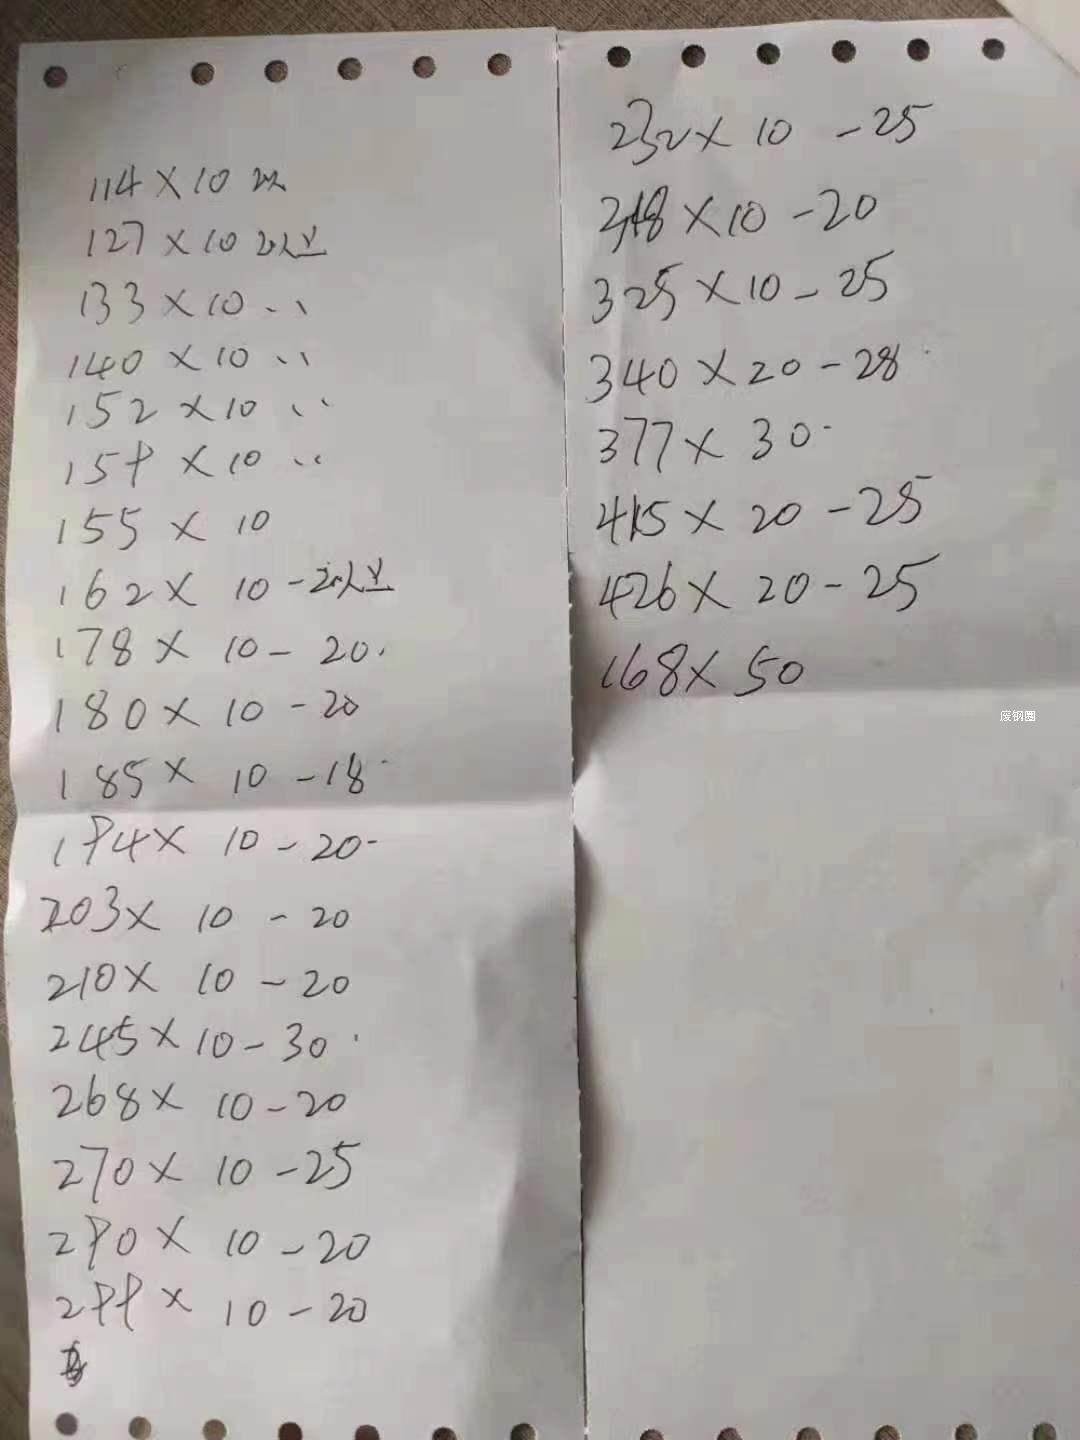 114×10以
127×10以上
133×10 〃
140×10 〃
152×10 〃
159×10 〃
155×10
162×10-20以上
178×10-20.
180×10-20
185×10-18
194×10-20-
203×10-20
210×10-20
245×10-30
268×10-20
270×10-25
290×10-20
299×10-20
232×10-25
×10-20
325×10-25
340×20-28
377×30
415×20-25
426×20-25
168×50
废钢圈